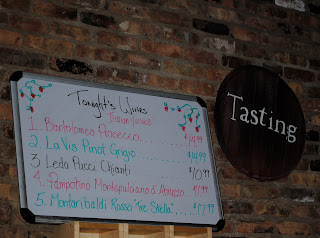 Tonight's Wines
Italian Values
1. Bartolomeo Prosecco
2. La Vis Pinot Grigio
3. Leda Pucci Chianti $10.99
4. Pampotino Montepulciano d'Abruzzo
5. Montaribaldi Rosso "Tre Stella"
Tasting